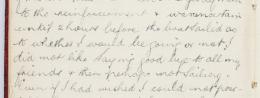 to the reinforcement & was uncertain
until 2 hours before the boat sailed as
to whether I would be going or not. I
did not like saying good bye to all my
friends & then perhaps not sailing.
Even if I had wished I could not pos-